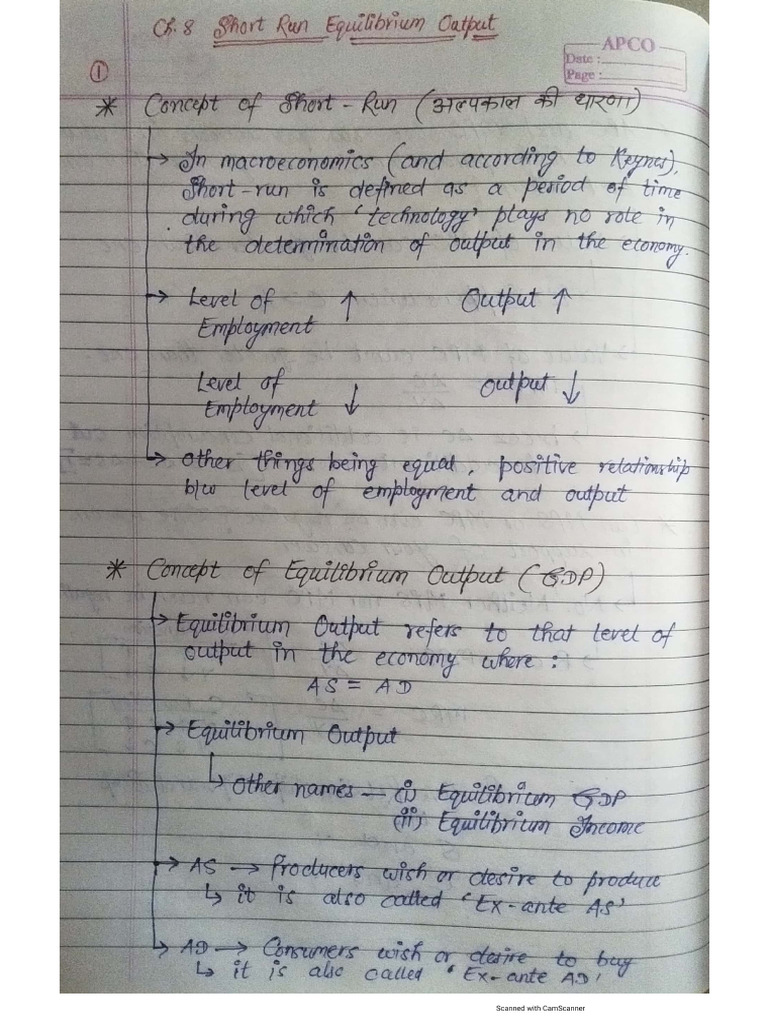 Ch. 8 Short Run Equilibrium Output
APCO
Date :
Page :
①
* Concept of Short-Run (अल्पकाल की धारणा)
→ In macroeconomics (and according to Keynes),
Short-run is defined as a period of time
during which 'technology' plays no role in
the determination of output in the economy.
→ Level of ↑ Output ↑
Employment
Level of ↓ Output ↓
Employment
→ Other things being equal, positive relationship
b/w level of employment and output
* Concept of Equilibrium Output (GDP)
→ Equilibrium Output refers to that level of
output in the economy where :
AS = AD
→ Equilibrium Output
↳ Other names — (i) Equilibrium GDP
(ii) Equilibrium Income
→ AS → Producers wish or desire to produce
↳ it is also called 'Ex-ante AS'
→ AD → Consumers wish or desire to buy
↳ it is also called 'Ex-ante AD'
Scanned with CamScanner